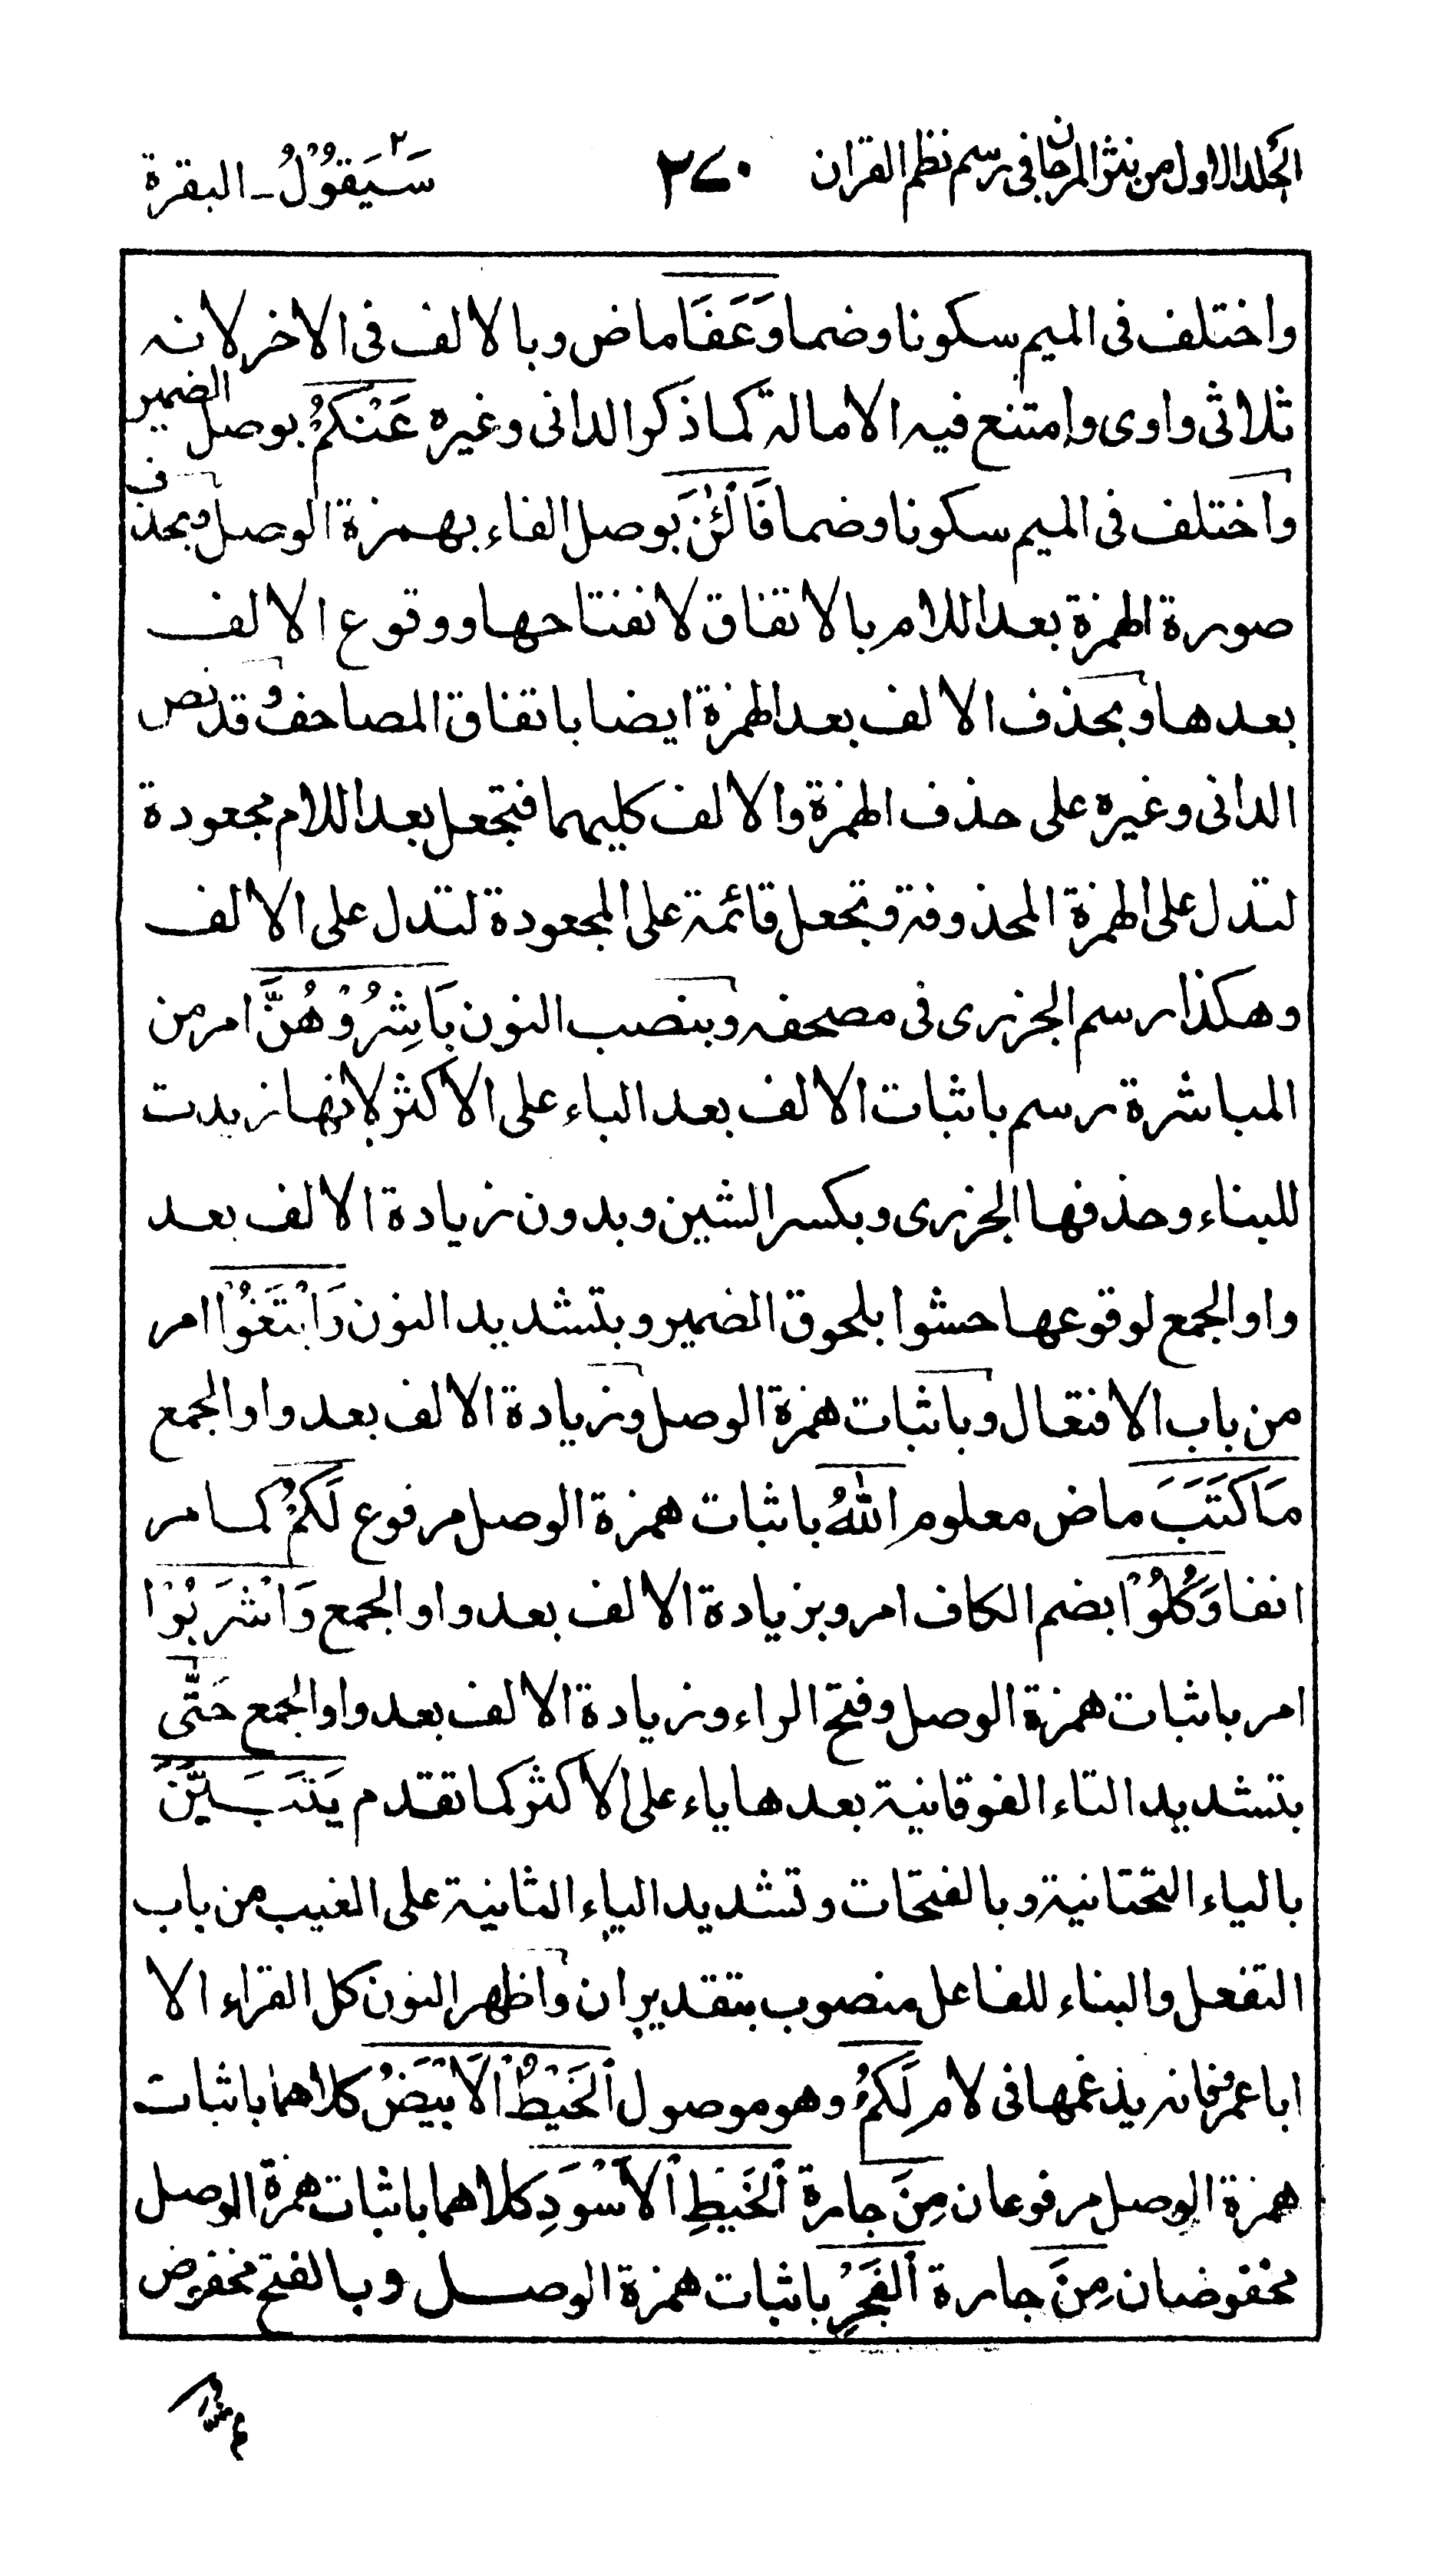 الجلد الاول من نثر المرجان فى رسم نظم القران ٢٧٠ سَيَقُوْلُ ٢ ـ البقرة
واختلف فى الميم سكونا وضما وَعَفَا ماض وبالالف فى الاخر لانه
ثلاثى واوى وامتنع فيه الامالة كما ذكر الدانى وغيره عَنْكُمْ بوصل الضمير
واختلف فى الميم سكونا وضما فَالْـٰٔنَ بوصل الفاء بهمزة الوصل وبحذف
صورة الهمزة بعد اللام بالاتفاق لانفتاحها ووقوع الالف
بعدها وبحذف الالف بعد الهمزة ايضا باتفاق المصاحف وقد نص
الدانى وغيره على حذف الهمزة والالف كليهما فتجعل بعد اللام مجعودة
لتدل على الهمزة المحذوفة وتجعل قائمة على المجعودة لتدل على الالف
وهكذا رسم الجزرى فى مصحفه وبنصب النون بَاشِرُوْهُنَّ امر من
المباشرة رسم باثبات الالف بعد الباء على الاكثر لانها زيدت
للبناء وحذفها الجزرى وبكسر الشين وبدون زيادة الالف بعد
واو الجمع لوقوعها حشوا بلحوق الضمير وبتشديد النون وَابْتَغُوْا امر
من باب الافتعال وباثبات همزة الوصل وزيادة الالف بعد واو الجمع
مَا كَتَبَ ماض معلوم اللّٰهُ باثبات همزة الوصل مرفوع لَكُمْ كما مر
انفا وَكُلُوْا بضم الكاف امر وبزيادة الالف بعد واو الجمع وَاشْرَبُوْا
امر باثبات همزة الوصل وفتح الراء وزيادة الالف بعد واو الجمع حَتّٰى
بتشديد التاء الفوقانية بعدها ياء على الاكثر كما تقدم يَتَبَيَّنَ
بالياء التحتانية وبالفتحات وتشديد الياء الثانية على الغيب من باب
التفعل والبناء للفاعل منصوب بتقدير ان واظهر النون كل القراء الا
ابا عمرو فانه يدغمها فى لام لَكُمُ وهو موصول الْخَيْطُ الْاَبْيَضُ كلاهما باثبات
همزة الوصل مرفوعان مِنَ جارة الْخَيْطِ الْاَسْوَدِ كلاهما باثبات همزة الوصل
مخفوضان مِنَ جارة الْفَجْرِ باثبات همزة الوصل وبالفتح مخفوض